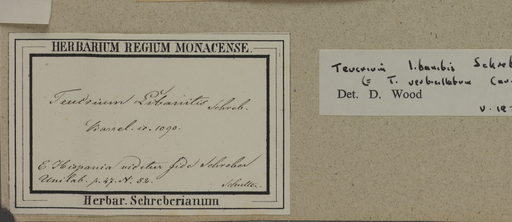 HERBARIUM REGIUM MONACENSE.
Teucrium Libanitis Schreb.
Barrel. ic. 1090.
E Hispania videtur fide Schreber
Unilab. p. 47. N. 52.
Schultes.
Herbar. Schreberianum
Teucrium libanitis Schreb
(= T. verticillatum Cav.
Det. D. Wood
V. 197